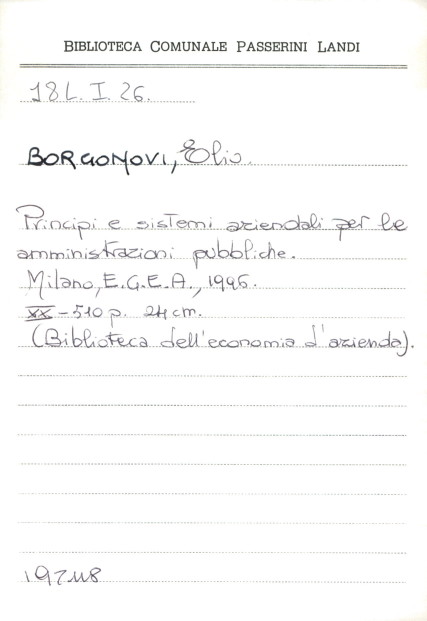 BIBLIOTECA COMUNALE PASSERINI LANDI
18 L. I. 26.
BORGONOVI, Elio.
Principi e sistemi aziendali per le
amministrazioni pubbliche.
Milano, E.G.E.A., 1996.
XX - 510 p. 24 cm.
(Biblioteca dell'economia d'azienda).